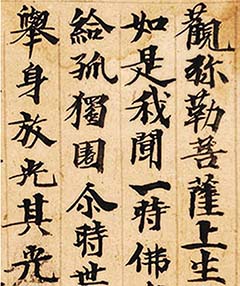 觀弥勒菩薩上生
如是我聞一時佛
給孤獨園尒時世
舉身放光其光